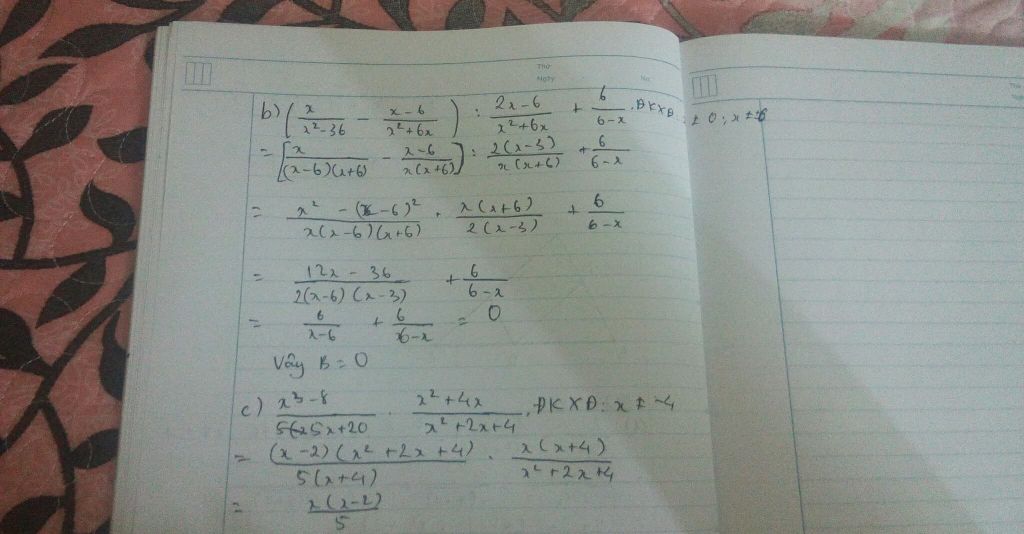 Thứ
Ngày No.
b) (x/(x²-36) - (x-6)/(x²+6x)) : (2x-6)/(x²+6x) + 6/(6-x) . ĐKXĐ: ≠ 0 ; x ≠ ±6
= [x/((x-6)(x+6)) - (x-6)/(x(x+6))] : 2(x-3)/(x(x+6)) + 6/(6-x)
= (x² - (x-6)²)/(x(x-6)(x+6)) . x(x+6)/(2(x-3)) + 6/(6-x)
= (12x - 36)/(2(x-6)(x-3)) + 6/(6-x)
= 6/(x-6) + 6/(6-x) = 0
Vậy B = 0
c) (x³-8)/(5x+20) . (x²+4x)/(x²+2x+4) , ĐKXĐ: x ≠ -4
= (x-2)(x²+2x+4)/(5(x+4)) . x(x+4)/(x²+2x+4)
= x(x-2)/5